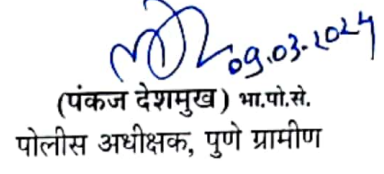 09.03.2024
(पंकज देशमुख) भा.पो.से.
पोलीस अधीक्षक, पुणे ग्रामीण